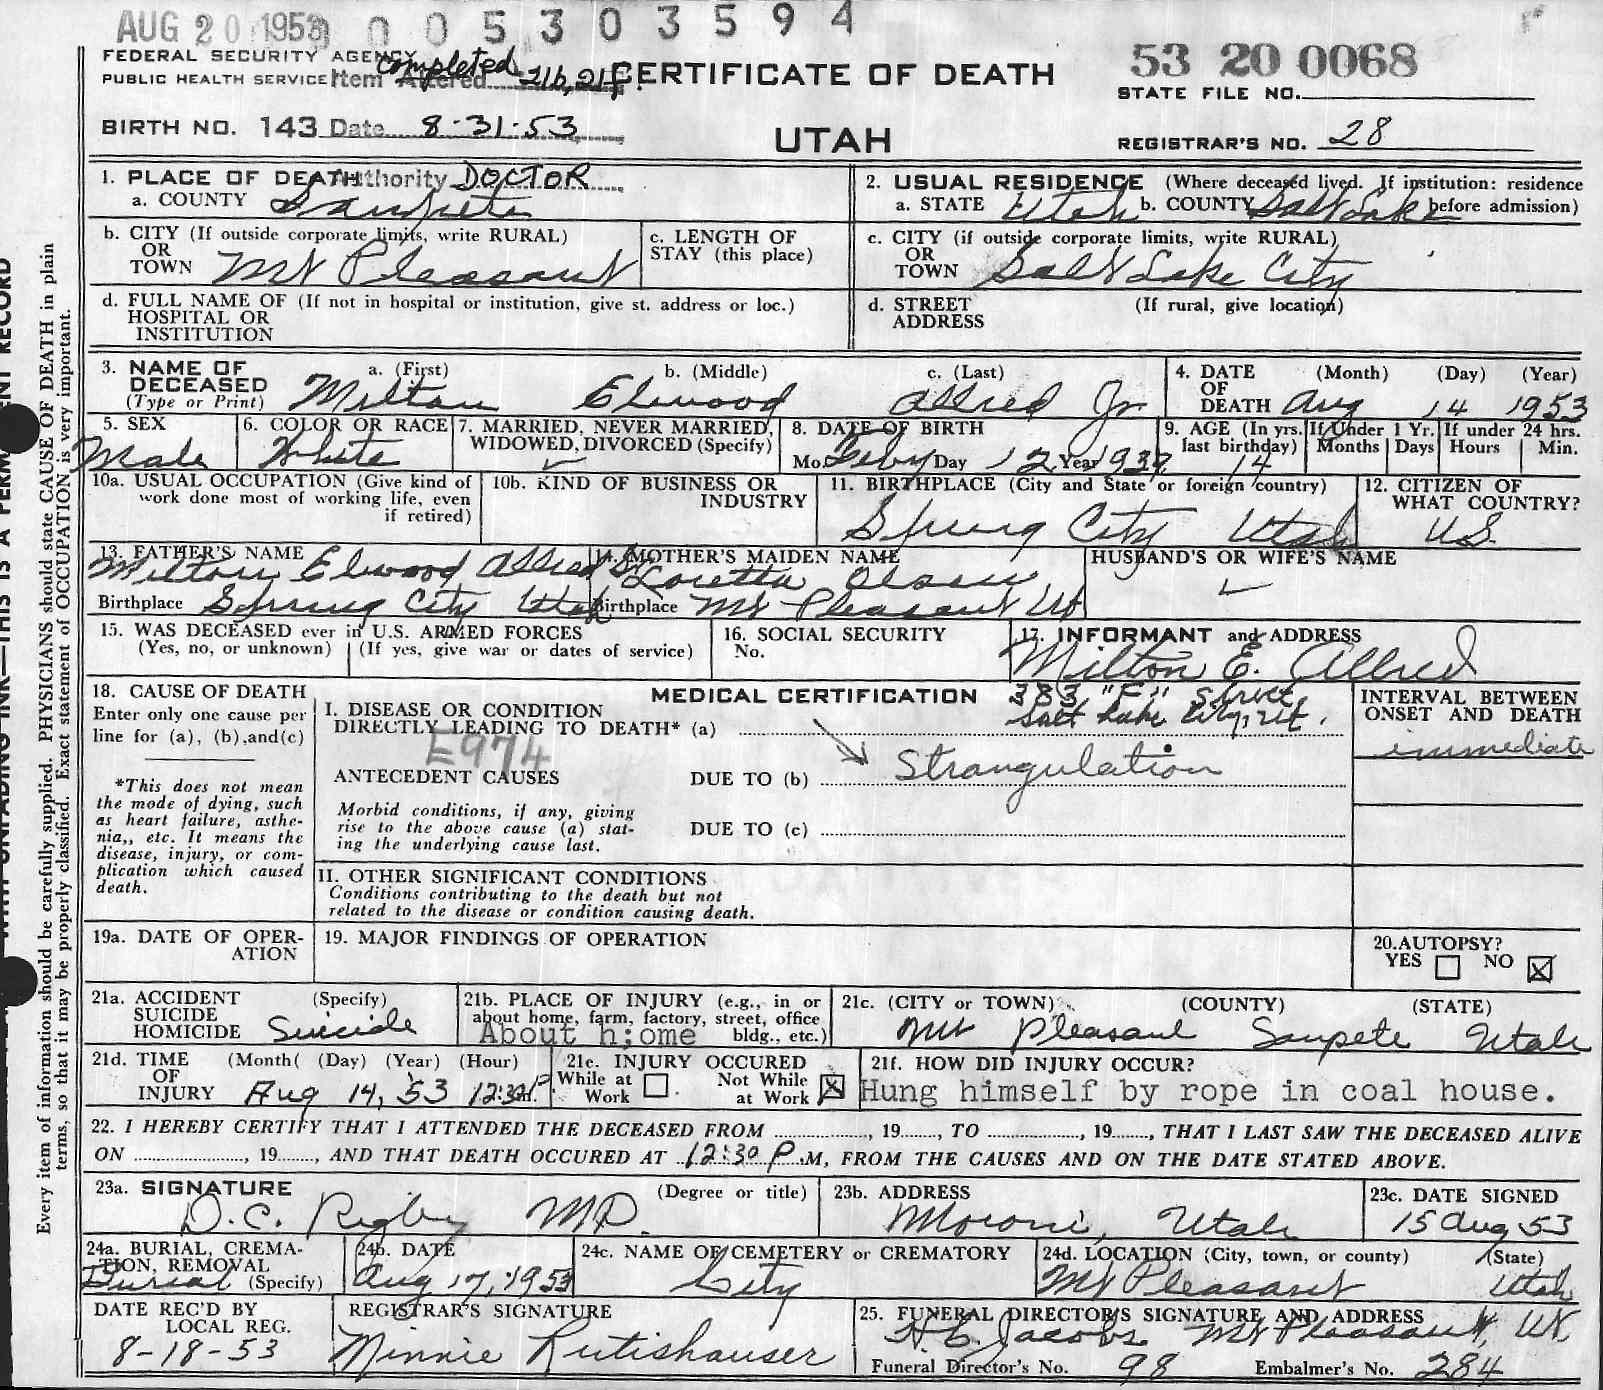 AUG 20 1953 0 0 5 3 0 3 5 9 4
FEDERAL SECURITY AGENCY
PUBLIC HEALTH SERVICE
Item Altered completed 21b, 21f.
CERTIFICATE OF DEATH
53 20 0068
STATE FILE NO.
BIRTH NO. 143 Date 8-31-53
UTAH
REGISTRAR'S NO. 28
1. PLACE OF DEATH Authority DOCTOR
a. COUNTY Sanpete
2. USUAL RESIDENCE (Where deceased lived. If institution: residence before admission)
a. STATE Utah b. COUNTY Salt Lake
b. CITY (If outside corporate limits, write RURAL)
OR TOWN Mt Pleasant
c. LENGTH OF STAY (this place)
c. CITY (if outside corporate limits, write RURAL)
OR TOWN Salt Lake City
d. FULL NAME OF (If not in hospital or institution, give st. address or loc.)
HOSPITAL OR
INSTITUTION
d. STREET ADDRESS (If rural, give location)
3. NAME OF DECEASED (Type or Print)
a. (First) b. (Middle) c. (Last)
Milton Elwood Allred Jr.
4. DATE OF DEATH (Month) (Day) (Year)
Aug 14 1953
5. SEX
Male
6. COLOR OR RACE
White
7. MARRIED, NEVER MARRIED, WIDOWED, DIVORCED (Specify)
8. DATE OF BIRTH
Mo. Feby Day 12 Year 1939
9. AGE (In yrs. last birthday) 14
If Under 1 Yr. Months Days
If under 24 hrs. Hours Min.
10a. USUAL OCCUPATION (Give kind of work done most of working life, even if retired)
10b. KIND OF BUSINESS OR INDUSTRY
11. BIRTHPLACE (City and State or foreign country)
Spring City Utah
12. CITIZEN OF WHAT COUNTRY?
U.S.
13. FATHER'S NAME
Milton Elwood Allred Sr
Birthplace Spring City Utah
14. MOTHER'S MAIDEN NAME
Loretta Olsen
Birthplace Mt Pleasant Ut
HUSBAND'S OR WIFE'S NAME
15. WAS DECEASED ever in U.S. ARMED FORCES
(Yes, no, or unknown) (If yes, give war or dates of service)
16. SOCIAL SECURITY No.
17. INFORMANT and ADDRESS
Milton E. Allred
383 "F" Street
Salt Lake City, Ut.
18. CAUSE OF DEATH
Enter only one cause per line for (a), (b), and (c)
*This does not mean the mode of dying, such as heart failure, asthenia,, etc. It means the disease, injury, or complication which caused death.
MEDICAL CERTIFICATION
I. DISEASE OR CONDITION
DIRECTLY LEADING TO DEATH* (a)
E974
ANTECEDENT CAUSES
DUE TO (b) Strangulation
Morbid conditions, if any, giving rise to the above cause (a) stating the underlying cause last.
DUE TO (c)
INTERVAL BETWEEN ONSET AND DEATH
immediate
II. OTHER SIGNIFICANT CONDITIONS
Conditions contributing to the death but not
related to the disease or condition causing death.
19a. DATE OF OPERATION
19. MAJOR FINDINGS OF OPERATION
20. AUTOPSY?
YES NO X
21a. ACCIDENT SUICIDE HOMICIDE (Specify)
Suicide
21b. PLACE OF INJURY (e.g., in or about home, farm, factory, street, office bldg., etc.)
About h;ome
21c. (CITY or TOWN) (COUNTY) (STATE)
Mt Pleasant Sanpete Utah
21d. TIME OF INJURY (Month( (Day) (Year) (Hour)
Aug 14, '53 12:30 P.m.
21e. INJURY OCCURED
While at Work Not While at Work X
21f. HOW DID INJURY OCCUR?
Hung himself by rope in coal house.
22. I HEREBY CERTIFY THAT I ATTENDED THE DECEASED FROM , 19 , TO , 19 , THAT I LAST SAW THE DECEASED ALIVE
ON , 19 , AND THAT DEATH OCCURED AT 12:30 P.M, FROM THE CAUSES AND ON THE DATE STATED ABOVE.
23a. SIGNATURE (Degree or title)
D.C. Rigby MD.
23b. ADDRESS
Moroni, Utah
23c. DATE SIGNED
15 Aug 53
24a. BURIAL, CREMATION, REMOVAL (Specify)
Burial
24b. DATE
Aug 17, 1953
24c. NAME OF CEMETERY or CREMATORY
City
24d. LOCATION (City, town, or county) (State)
Mt Pleasant Utah
DATE REC'D BY LOCAL REG.
8-18-53
REGISTRAR'S SIGNATURE
Minnie Rutishauser
25. FUNERAL DIRECTOR'S SIGNATURE AND ADDRESS
H.C. Jacobs Mt Pleasant, Ut
Funeral Director's No. 98 Embalmer's No. 284
Every item of information should be carefully supplied. PHYSICIANS should state CAUSE OF DEATH in plain
terms, so that it may be properly classified. Exact statement of OCCUPATION is very important.
UNFADING INK—THIS IS A PERM ENT RECORD